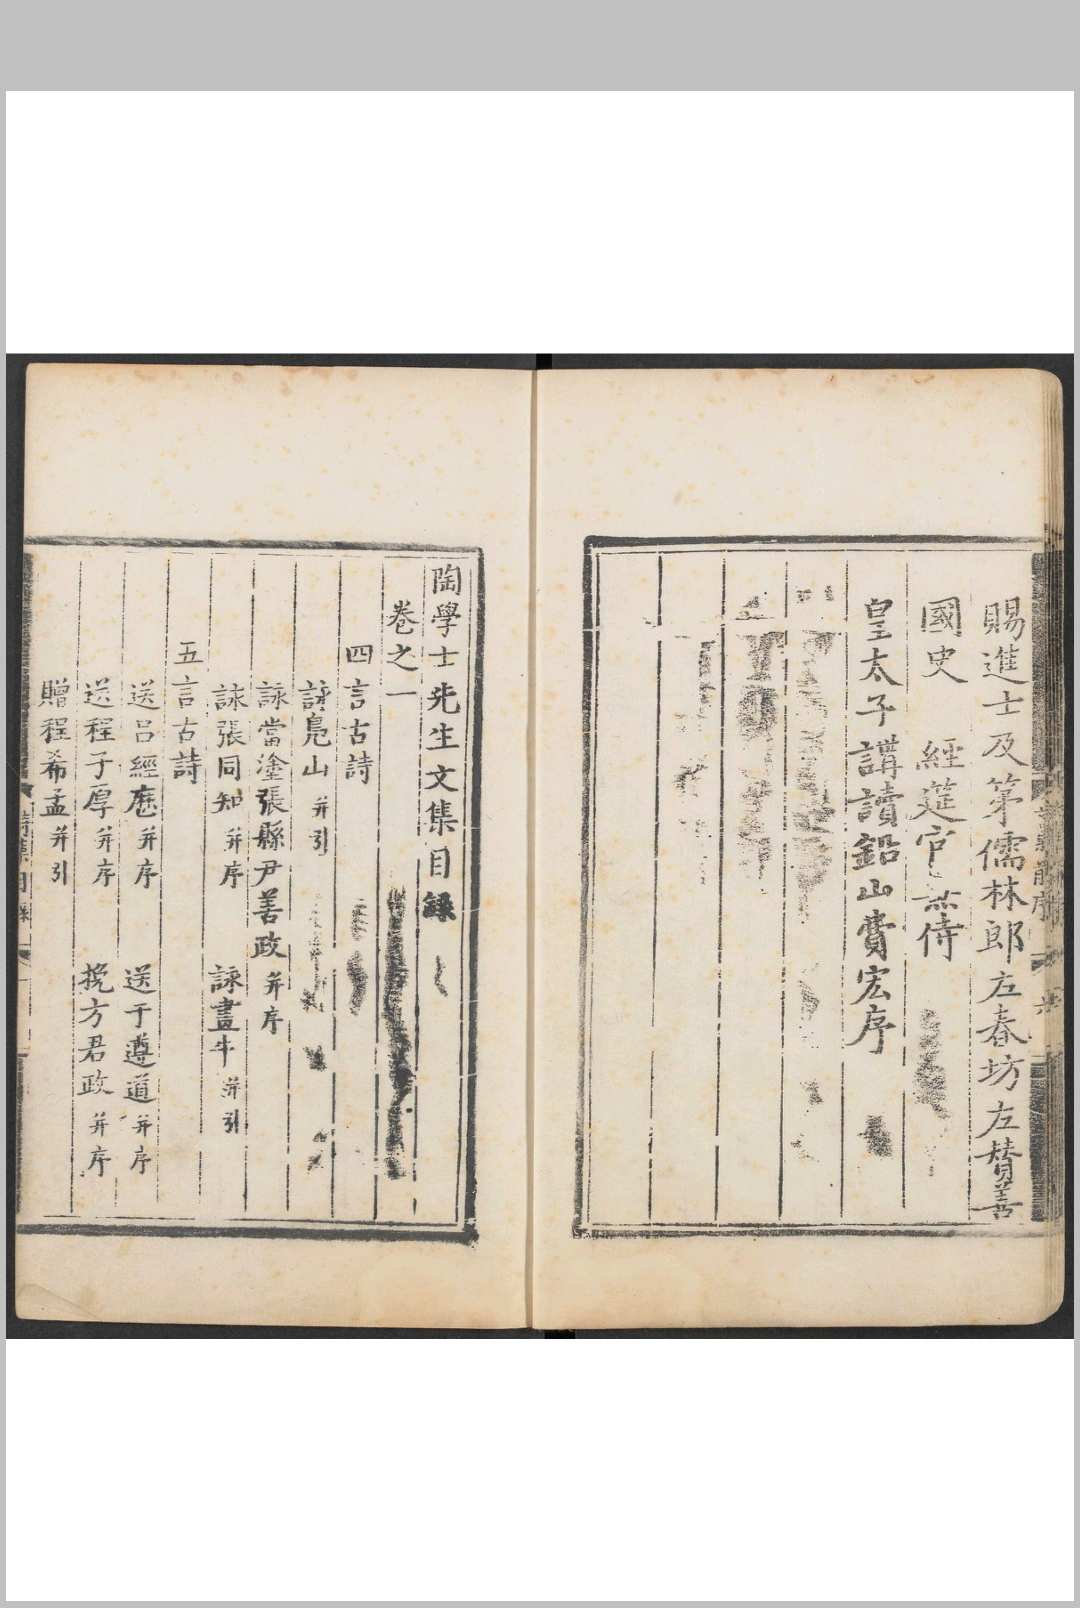 賜進士及第儒林郎左春坊左賛善
國史 經筵官兼侍
皇太子講讀鉛山費宏序
陶學士先生文集目錄
卷之一
四言古詩
詠鳧山并引
詠當塗張縣尹善政并序
詠張同知并序 詠畫牛并引
五言古詩
送呂經歷并序 送于遵道并序
送程子厚并序 挽方君政并序
贈程希孟并引